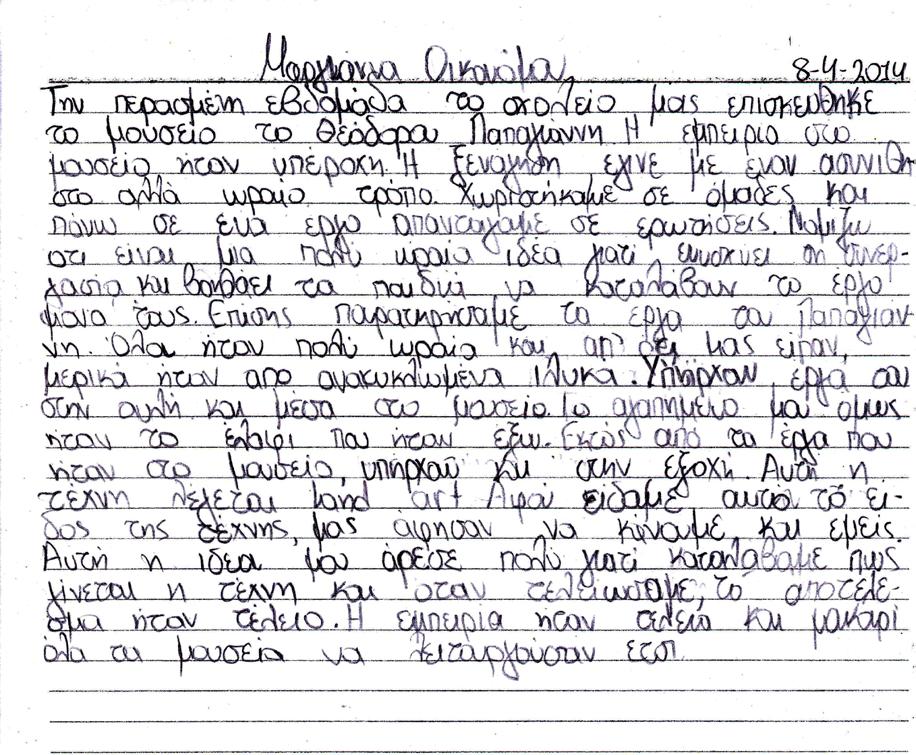 Μαργιάννα Οικονόμου 8-4-2014
Την περασμένη εβδομάδα το σχολείο μας επισκεύθηκε
το μουσείο το Θεόδορου Παπαγιάννη Η εμπειρία στο
μουσείο ήταν υπέροχη. Η ξενάγηση έγινε με έναν ασυνίθη
στο αλλά ωραίο τρόπο. Χωριστήκαμε σε ομάδες και
πάνω σε ένα έργο απαντούσαμε σε ερωτήσεις. Νομίζω
οτι είναι μια πολύ ωραία ιδέα γιατί ενισχύει τη συνερ-
γασία και βοηθάει τα παιδιά να καταλάβουν το έργο
μόνα τους. Επίσης παρατηρήσαμε τα έργα του Παπαγιάν-
νη. Όλα ήταν πολύ ωραία και απ' ότι μας είπαν,
μερικά ήταν από ανακυκλωμένα ιλυκα. Υπήρχαν έργα και
στην αυλή και μέσα στο μουσείο. Το αγαπημένο μου όμως
ήταν το ελάφι που ήταν έξω. Εκτός από τα έργα που
ήταν στο μουσείο, υπήρχαν και στην εξοχή. Αυτή η
τέχνη λέγεται land art Αφού είδαμε αυτό το εί-
δος της τέχνης, μας άφησαν να κάνουμε και εμείς.
Αυτή η ιδέα μου άρεσε πολύ γιατί καταλάβαμε πως
γίνεται η τέχνη και όταν τελειώσαμε, το αποτέλε-
σμα ήταν τέλειο. Η εμπειρία ήταν τέλεια και μακάρι
όλα τα μουσεία να λειτουργούσαν έτσι